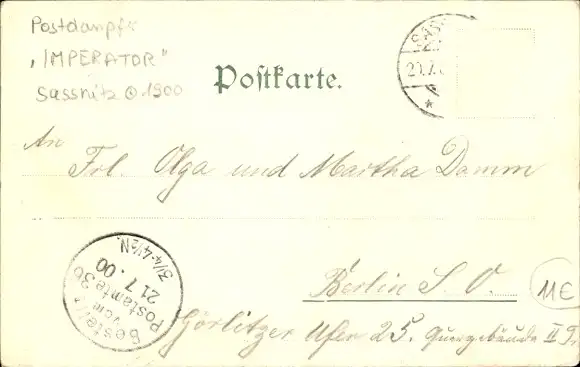 Postdampfr
„IMPERATOR"
Sassnitz 1900
Postkarte.
SASS
20.7.
An
Frl. Olga und Martha Damm
Berlin S. O.
Görlitzer Ufer 25. Quergebäude II Tr
11E
Bestellt
vom
Postamte 36
21 7. 00
3¼-4½N.